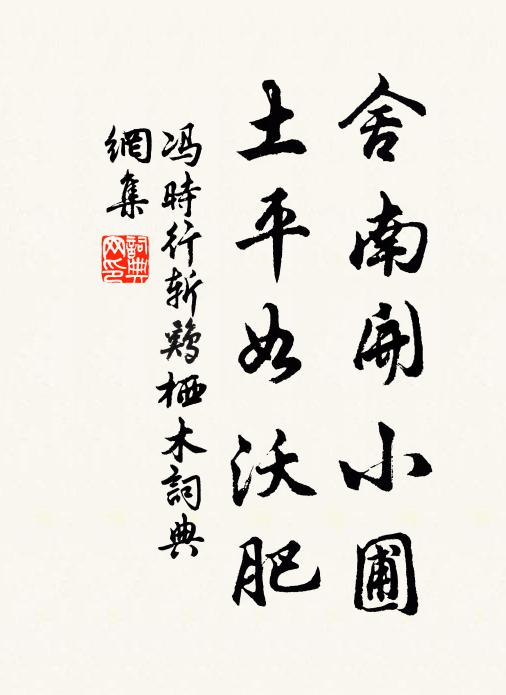 舍南開小圃
土平如沃肥
冯時行斬鷄栖木詞典
網集
詞典
网印